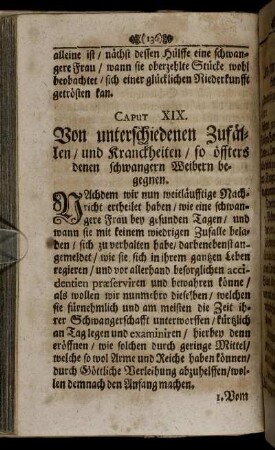 (136)
alleine ist / nächst dessen Hülffe eine schwan-
gere Frau / wann sie oberzehlte Stücke wohl
beobachtet / sich einer glücklichen Niederkunfft
getrösten kan.
CAPUT XIX.
Von unterschiedenen Zufäl-
len / und Kranckheiten / so öffters
denen schwangern Weibern be-
gegnen.
NAchdem wir nun weitläufftige Nach-
richt ertheilet haben / wie eine schwan-
gere Frau bey gesunden Tagen / und
wann sie mit keinem wiedrigen Zufalle bela-
den / sich zu verhalten habe / darbenebenst an-
gemeldet / wie sie sich in ihrem gantzen Leben
regieren / und vor allerhand besorglichen acci-
dentien præserviren und bewahren könne /
als wollen wir nunmehro dieselben / welchen
sie fürnehmlich und am meisten die Zeit ih-
rer Schwangerschafft unterworffen / kürtzlich
an Tag legen und examiniren / hierbey denn
eröffnen / wie solchen durch geringe Mittel /
welche so wol Arme und Reiche haben können /
durch Göttliche Verleihung abzuhelffen / wol-
len demnach den Anfang machen.
1. Vom